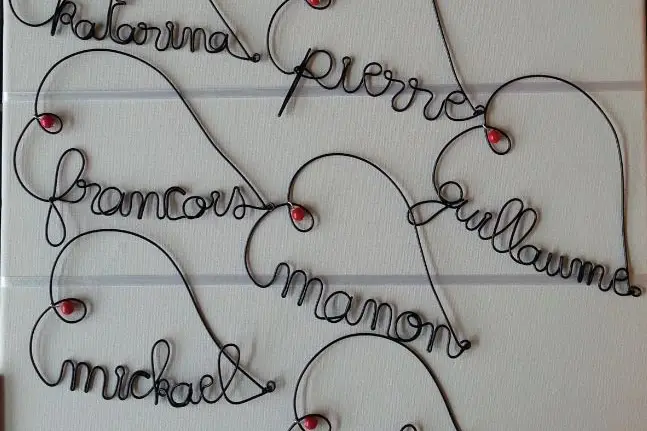 katarina
pierre
francois
guillaume
manon
mickael